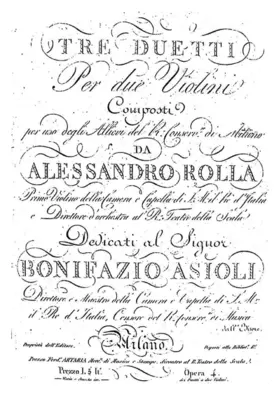 TRE DUETTI
Per due Violini
Composti
per uso degli Allievi del R. Conserv. di Milano
DA
ALESSANDRO ROLLA
Primo Violino della Camera e Capella di S. M. il Re d'Italia
e Direttore d'orchestra al R. Teatro della Scala
Dedicati al Signor
BONIFAZIO ASIOLI
Direttore e Maestro della Camera e Capella di S. M.
il Re d'Italia, Censore del R. Conserv. di Musica
dall'
Proprietà dell'Editore.
Milano
Presso Ferd. ARTARIA
di Musica e Stampe, dicontro al R. Teatro della Scala.
Prezzo
Opera 4.